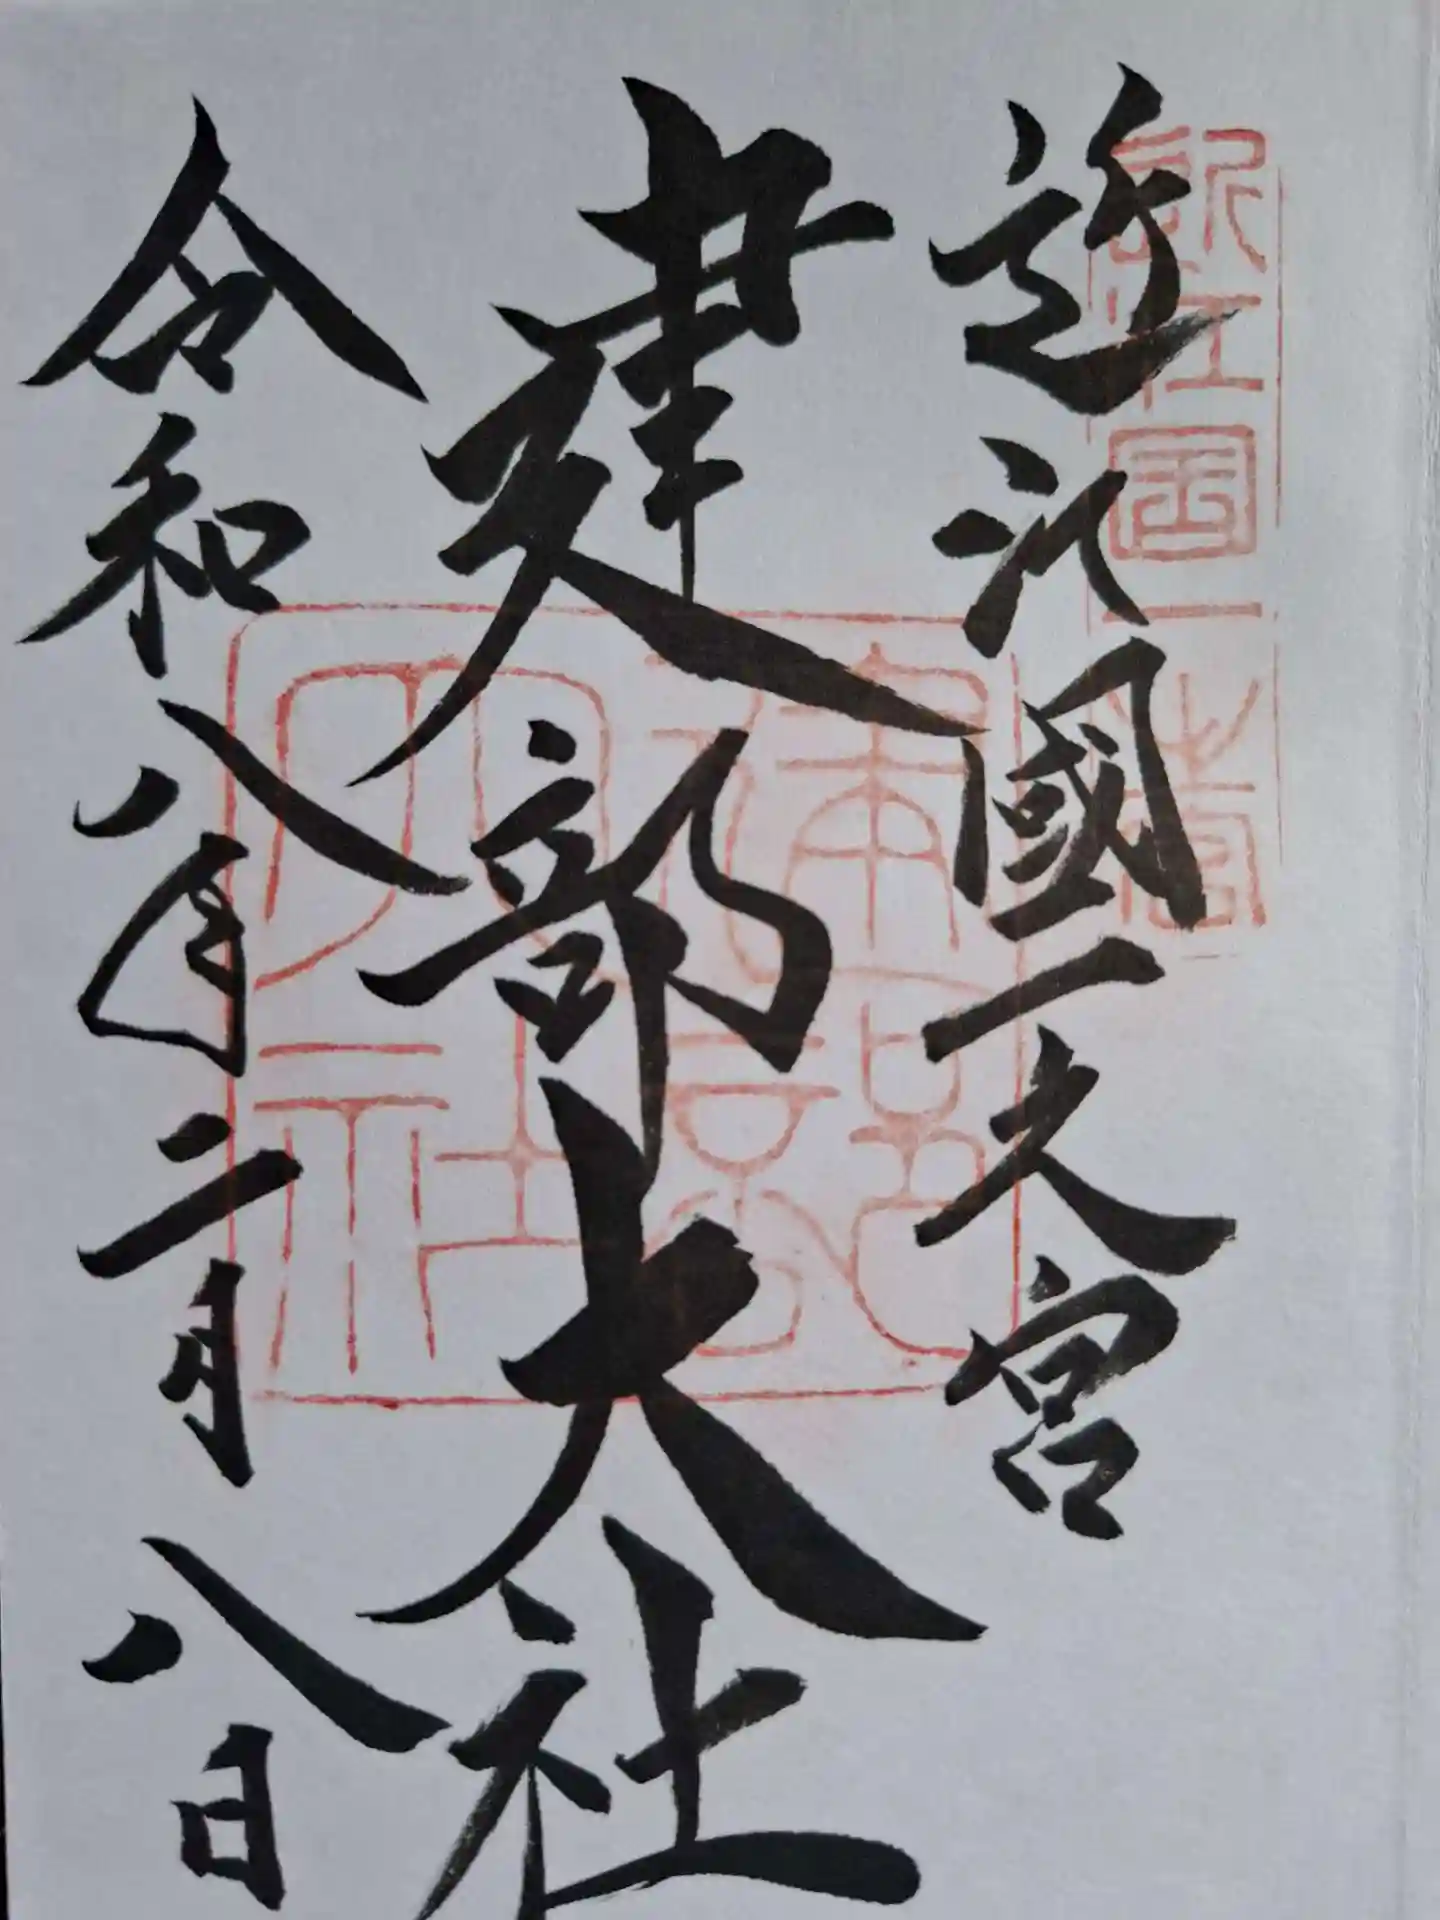 近江國一之宮
建部大社
令和八年二月八日
近江国一之宮
建部大社